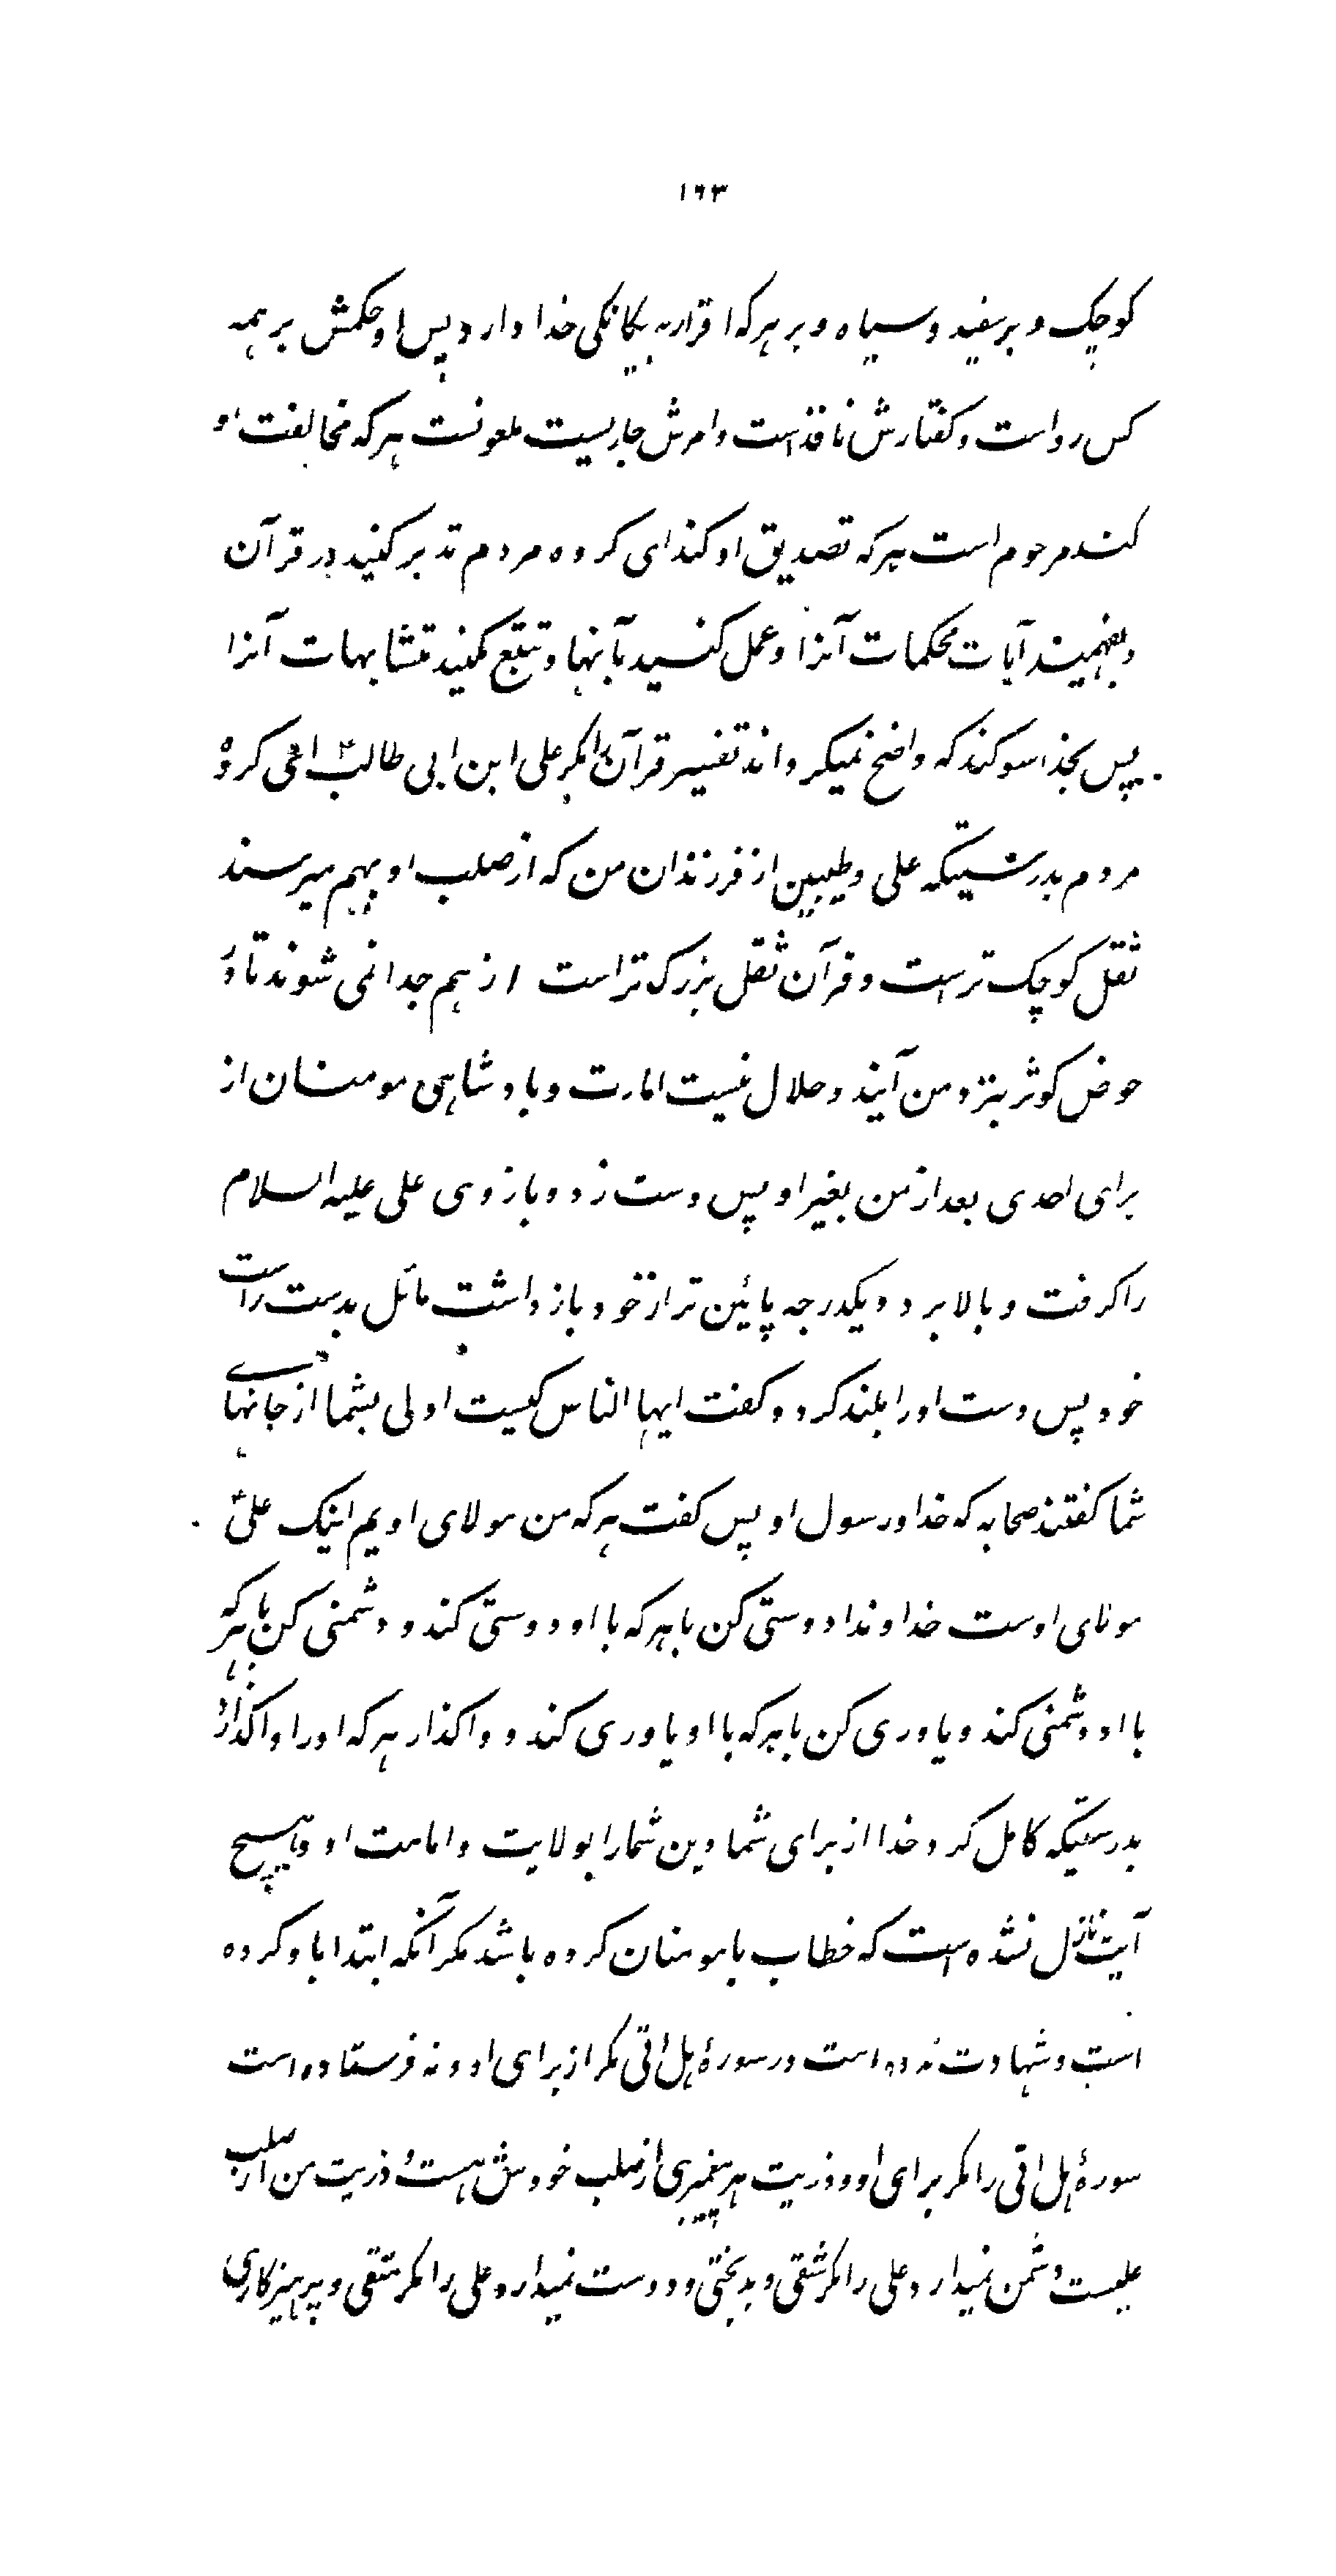 ١٦٣
کوچک و بر سفید و سیاه و بر هر که اقرار به یکانکی خدا دارد پس او حکمش بر همه
کس رواست و کفتارش نافذ است و امرش جاریست ملعونست هر که مخالفت او
کند مرحوم است هر که تصدیق او کند ای کروه مردم تدبر کنید در قرآن
و بفهمیند آیات محکمات آنرا و عمل کنید بآنها و تتبع مکنید متشابهات آنرا
پس بخدا سوکند که واضح نمیکرداند تفسیر قرآن را مکر علی ابن ابی طالب ع ای کروه
مردم بدرستیکه علی و طیبین از فرزندان من که از صلب او بهم میرسند
ثقل کوچک تر است و قرآن ثقل بزرک تر است از هم جدا نمی شوند تا در
حوض کوثر بنزد من آیند و حلال نیست امارت و پادشاهی مومنان از
برای احدی بعد از من بغیر او پس دست زد و بازوی علی علیه السلام
را کرفت و بالا برد و یکدرجه پائین تر از خود باز داشت مائل بدست راست
خود پس دست او را بلند کرد و کفت ایها الناس کیست اولی بشما از جانهای
شما کفتند صحابه که خدا و رسول او پس کفت هر که من مولای اویم اینک علی ع
مولای اوست خداوندا دوستی کن با هر که با او دوستی کند و دشمنی کن با هر که
با او دشمنی کند و یاوری کن با هر که با او یاوری کند و واکذار هر که او را واکذارد
بدرستیکه کامل کرد خدا از برای شما دین شما را بولایت و امامت او و هیچ
آیت نازل نشده است که خطاب با مومنان کرده باشد مکر آنکه ابتدا باو کرده
است و شهادت نداده است در سورۀ هل اتی مکر از برای او و نه فرستاده است
سورۀ هل اتی را مکر برای او و ذریت هر پیغمبری از صلب خودش هست و ذریت من از صلب
علیست دشمن نمیدارد علی را مکر شقی و بدبختی و دوست نمیدارد علی را مکر متقی و پرهیزکاری